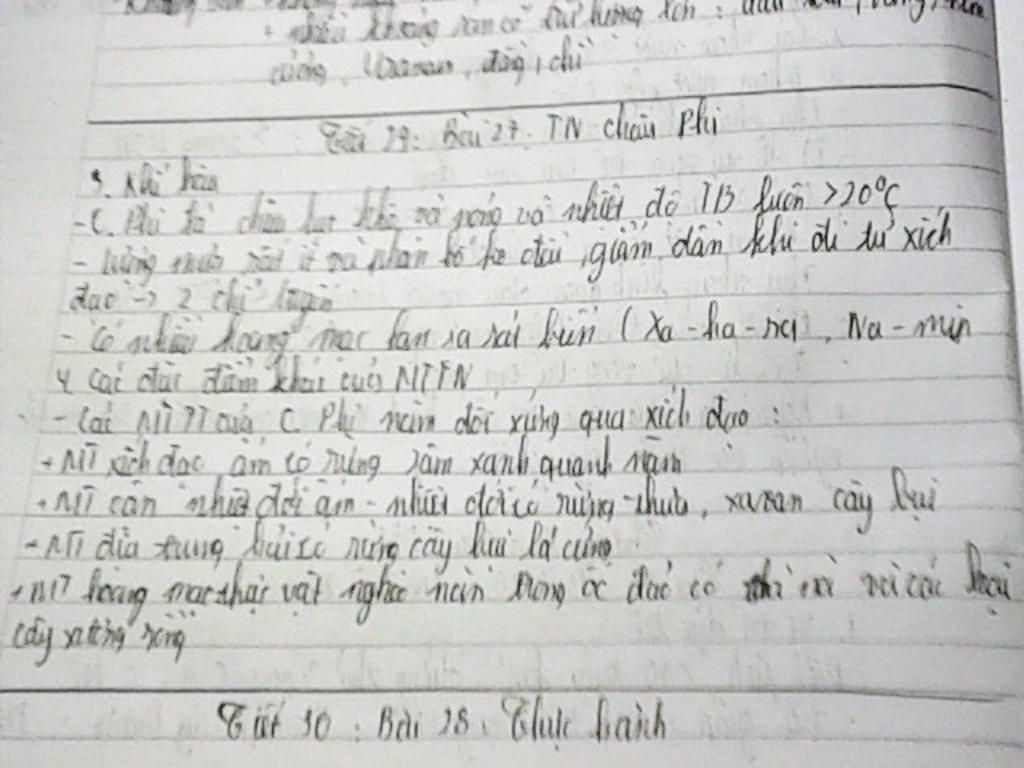 + nhiều khoáng sản có trữ lượng lớn : dầu mỏ, vàng, kim
cương, Uranan, đồng, chì
Tiết 29: Bài 27: TN châu Phi
3. Khí hậu
- C. Phi là châu lục khô và nóng và nhiệt độ TB luôn >20°C
- lượng mưa rất ít và phân bố ko đều, giảm dần khi đi từ xích
đạo -> 2 chí tuyến
- Có nhiều hoang mạc lan ra sát biển (Xa-ha-ra, Na-mip
4 Các đặc điểm khác của MTTN
- Các MTTN của C. Phi nằm đối xứng qua xích đạo :
+ MT xích đạo ẩm có rừng rậm xanh quanh năm
+ MT cận nhiệt đới ẩm - nhiệt đới có rừng thưa, xavan cây bụi
- MT địa trung hải có rừng cây bụi lá cứng
+ MT hoang mạc thực vật nghèo nàn trong ốc đảo có với các loại
cây xương rồng
Tiết 30 : Bài 28 : Thực hành